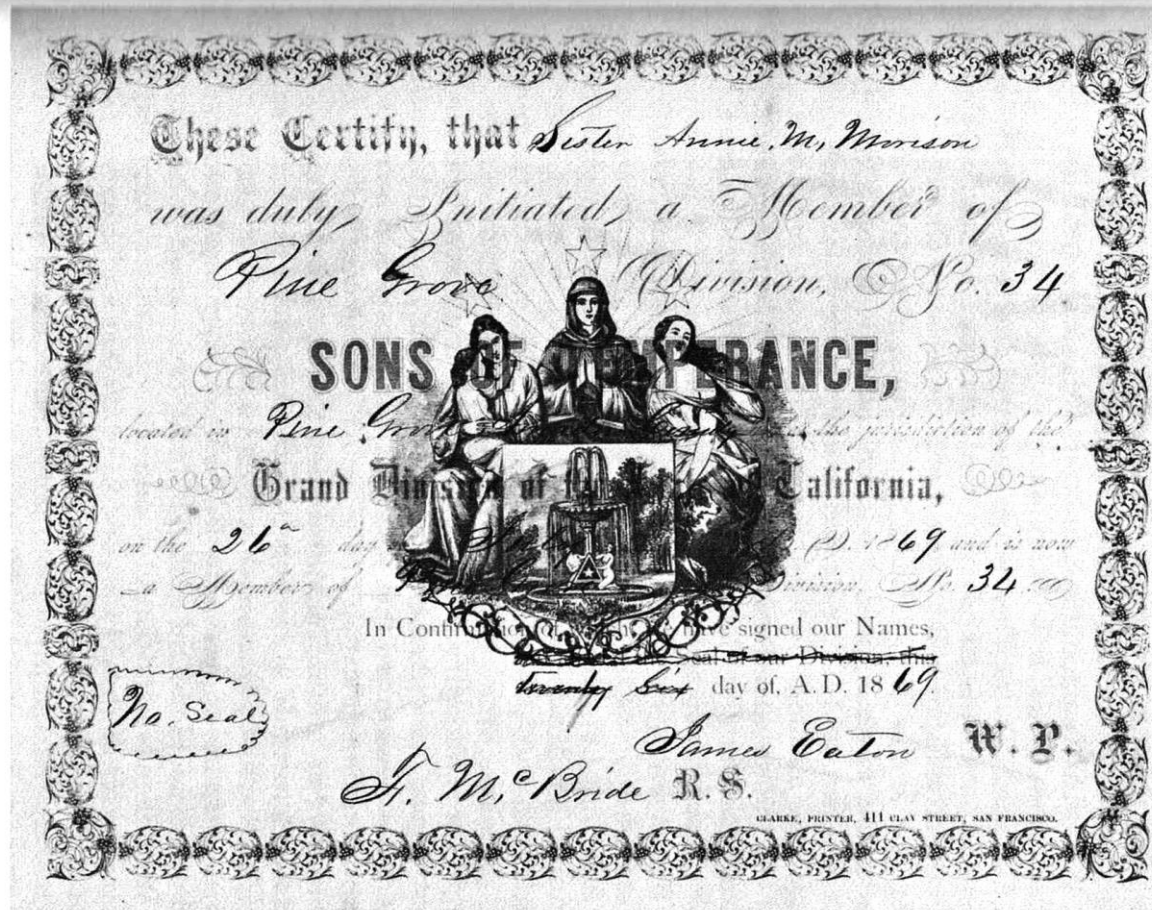 These Certify, that Sister Annie. M, Morison
was duly Initiated a Member of
Pine Grove Division, No. 34
SONS OF TEMPERANCE,
located in Pine Grove the jurisdiction of the
Grand Division of California,
on the 26 day D. 1869 and is now
a Member of Division, No. 34
In Confirmation have signed our Names,
Seal of our Division, this
twenty Six day of, A.D. 1869.
No. Seal
James Eaton W. P.
F. McBride R. S.
CLARKE, PRINTER, 411 CLAY STREET, SAN FRANCISCO.